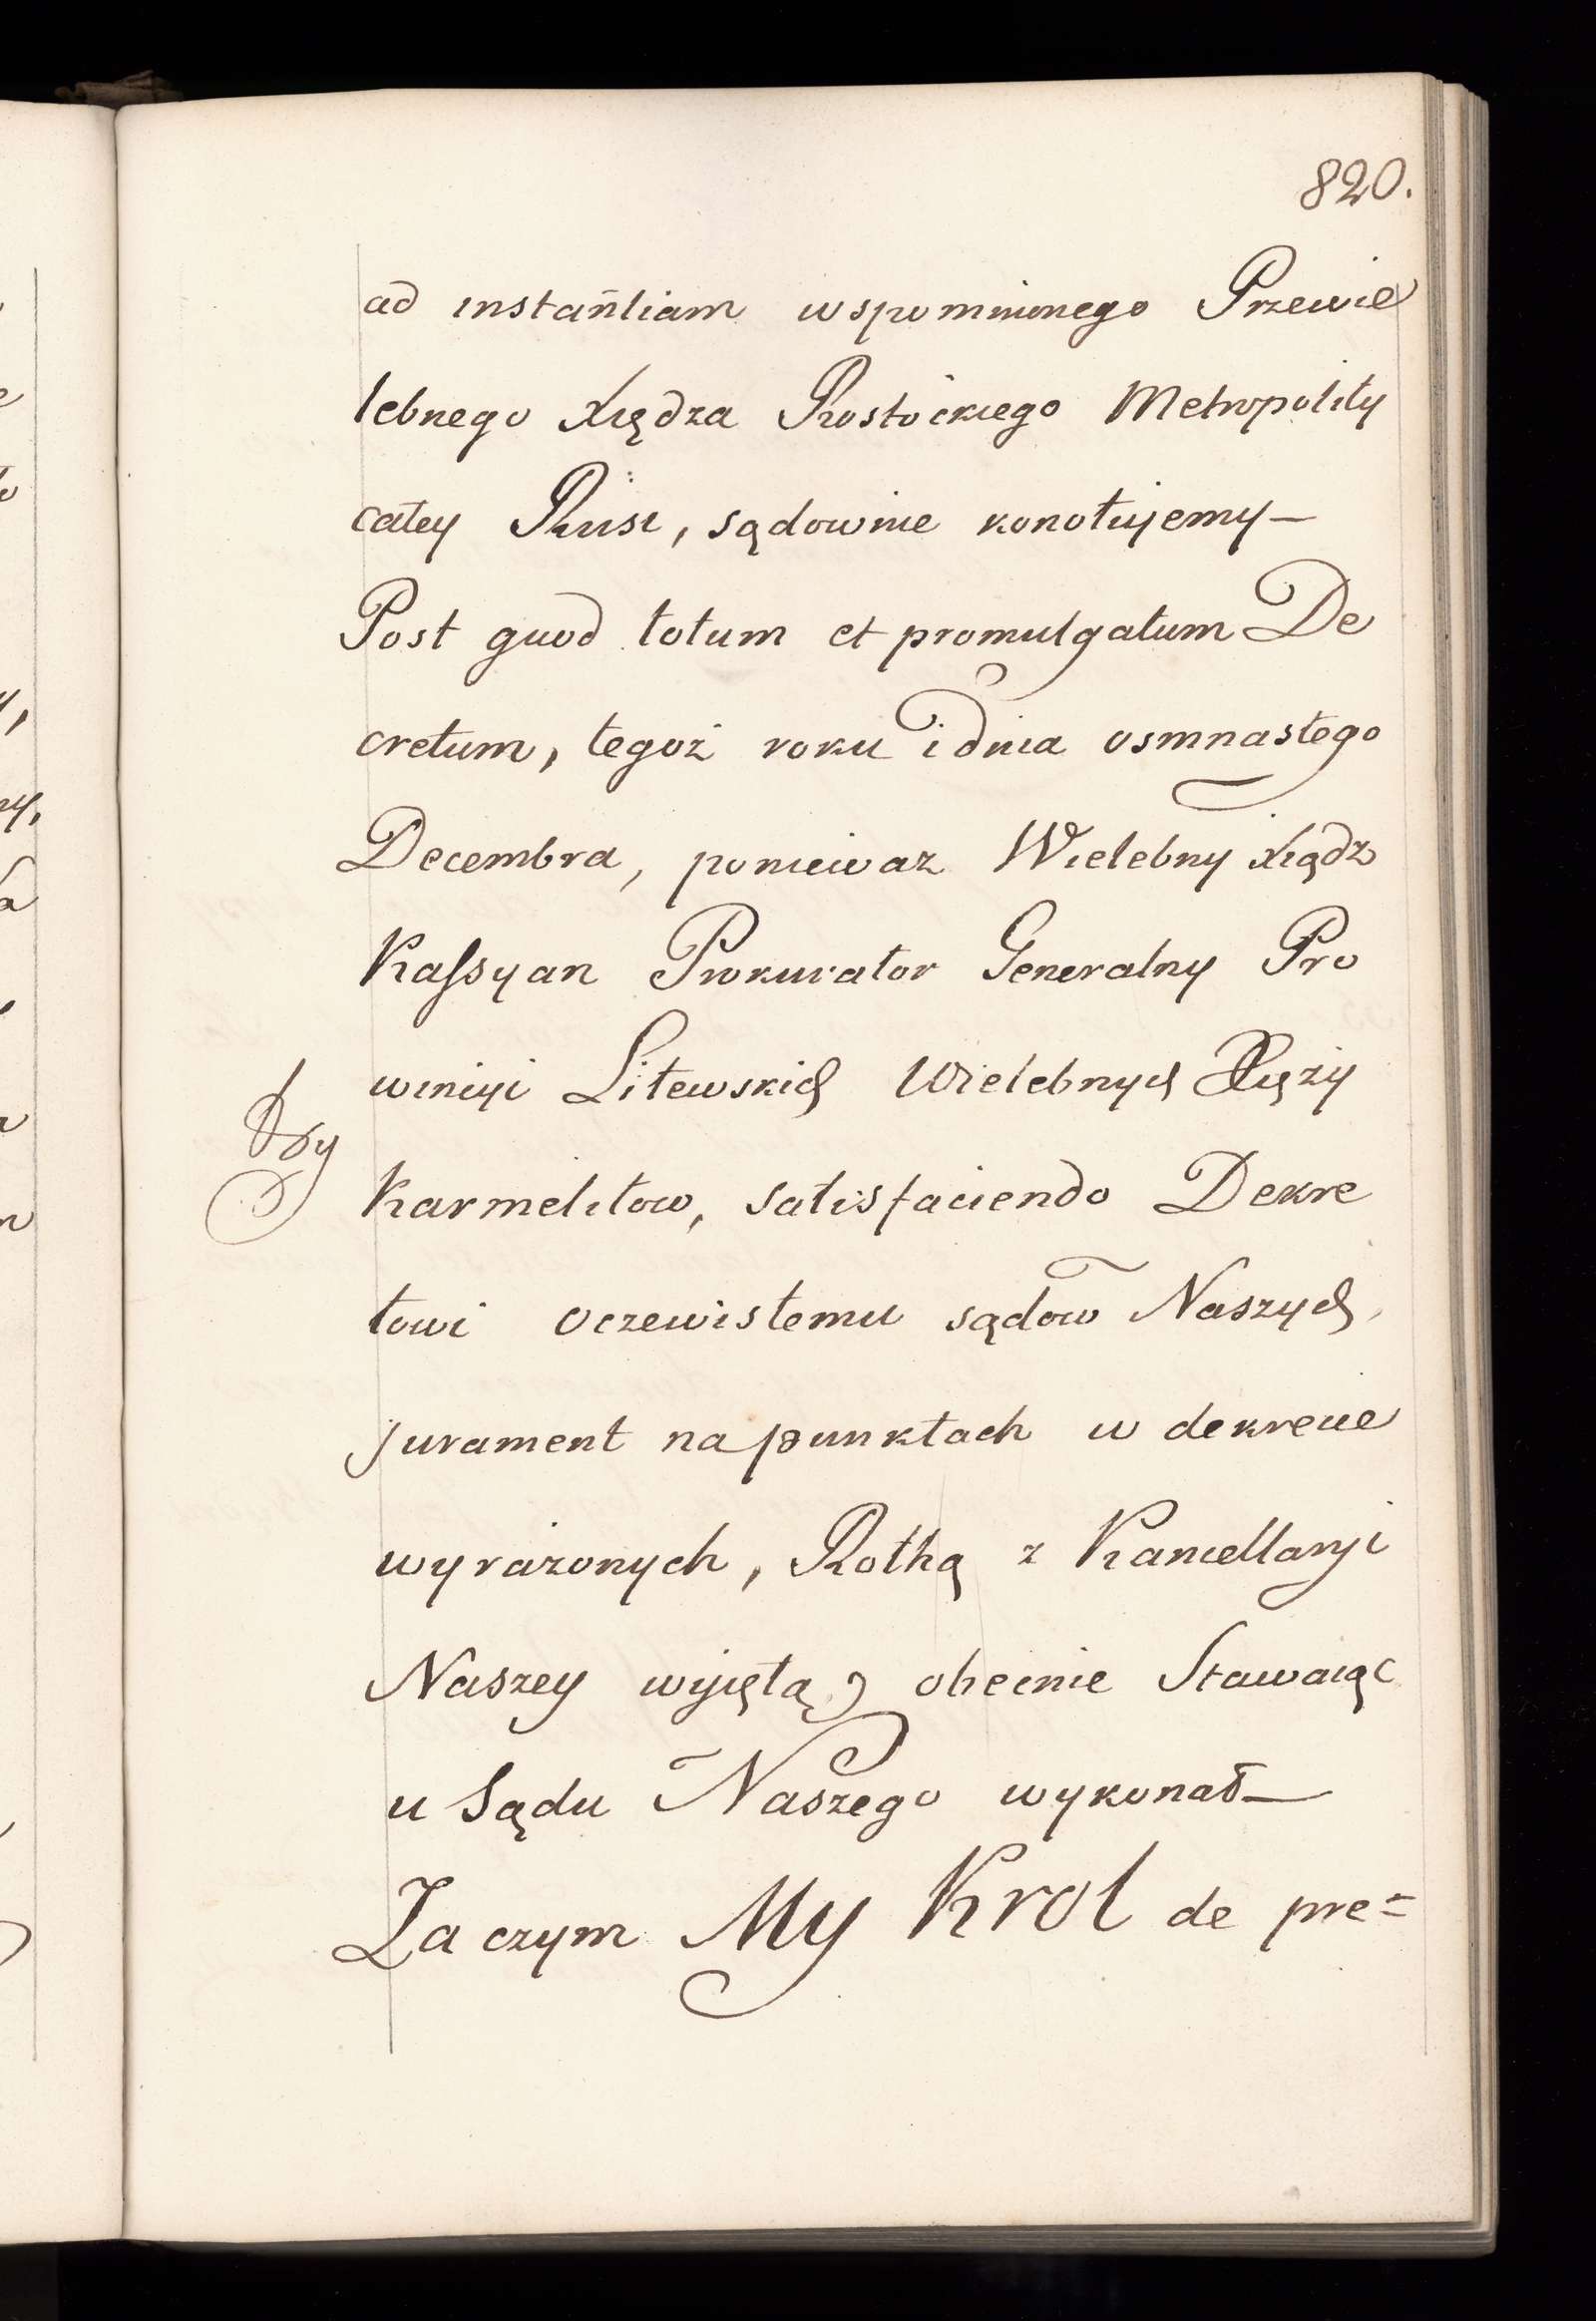 820.
ad instantiam wspomnionego Przewie
lebnego Xiędza Rostockiego Metropolity
całey Rusi, sądownie konotujemy—
Post quod totum et promulgatum De
cretum, tegoż roku i dnia osmnastego
Decembra, ponieważ Wielebny Xiądz
Kassyan Prokurator Generalny Pro
wincyi Litewskich Wielebnych Xięży
Karmelitow, satisfaciendo Dekre
towi oczewistemu sądow Naszych,
jurament na punktach w dekrecie
wyrażonych, Rothą z Kancellaryi
Naszey wyjętą, obecnie Stawaiąc
u Sądu Naszego wykonał—
Za czym My Krol de pre=